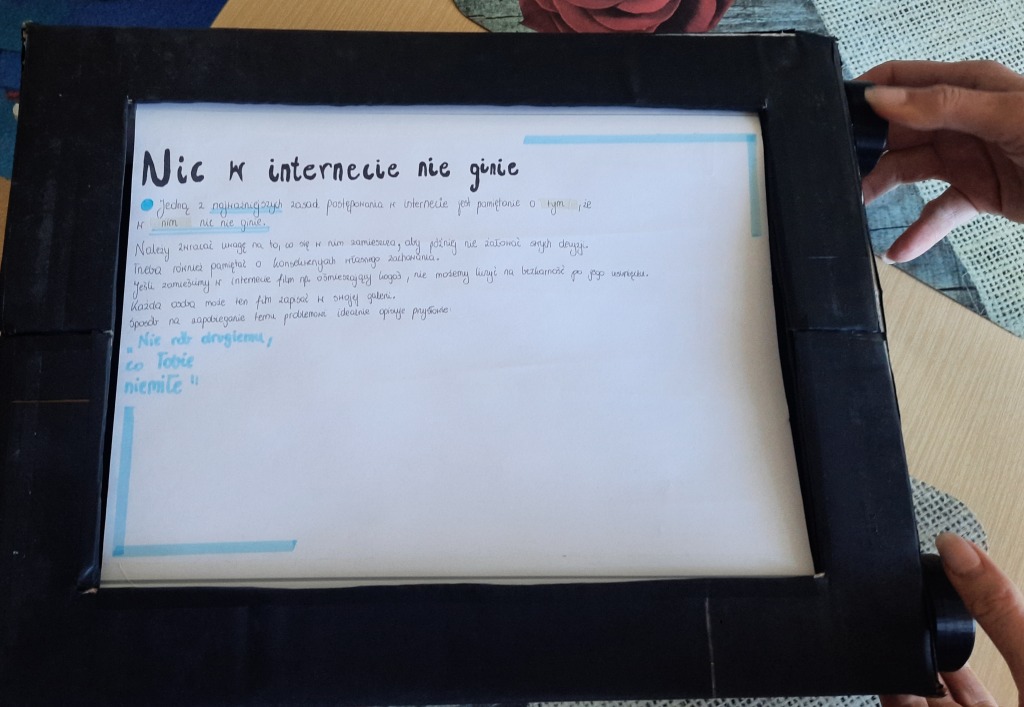 Nic w internecie nie ginie
Jedną z najważniejszych zasad postępowania w internecie jest pamiętanie o tym, że
w nim nic nie ginie.
Należy zwracać uwagę na to, co się w nim zamieszcza, aby później nie żałować swych decyzji.
Trzeba również pamiętać o konsekwencjach własnego zachowania.
Jeśli zamieścimy w internecie film np. ośmieszający kogoś, nie możemy liczyć na bezkarność po jego usunięciu.
Każda osoba może ten film zapisać w swojej galerii.
Sposób na zapobieganie temu problemowi idealnie opisuje przysłowie:
„Nie rób drugiemu,
co Tobie
niemiłe"